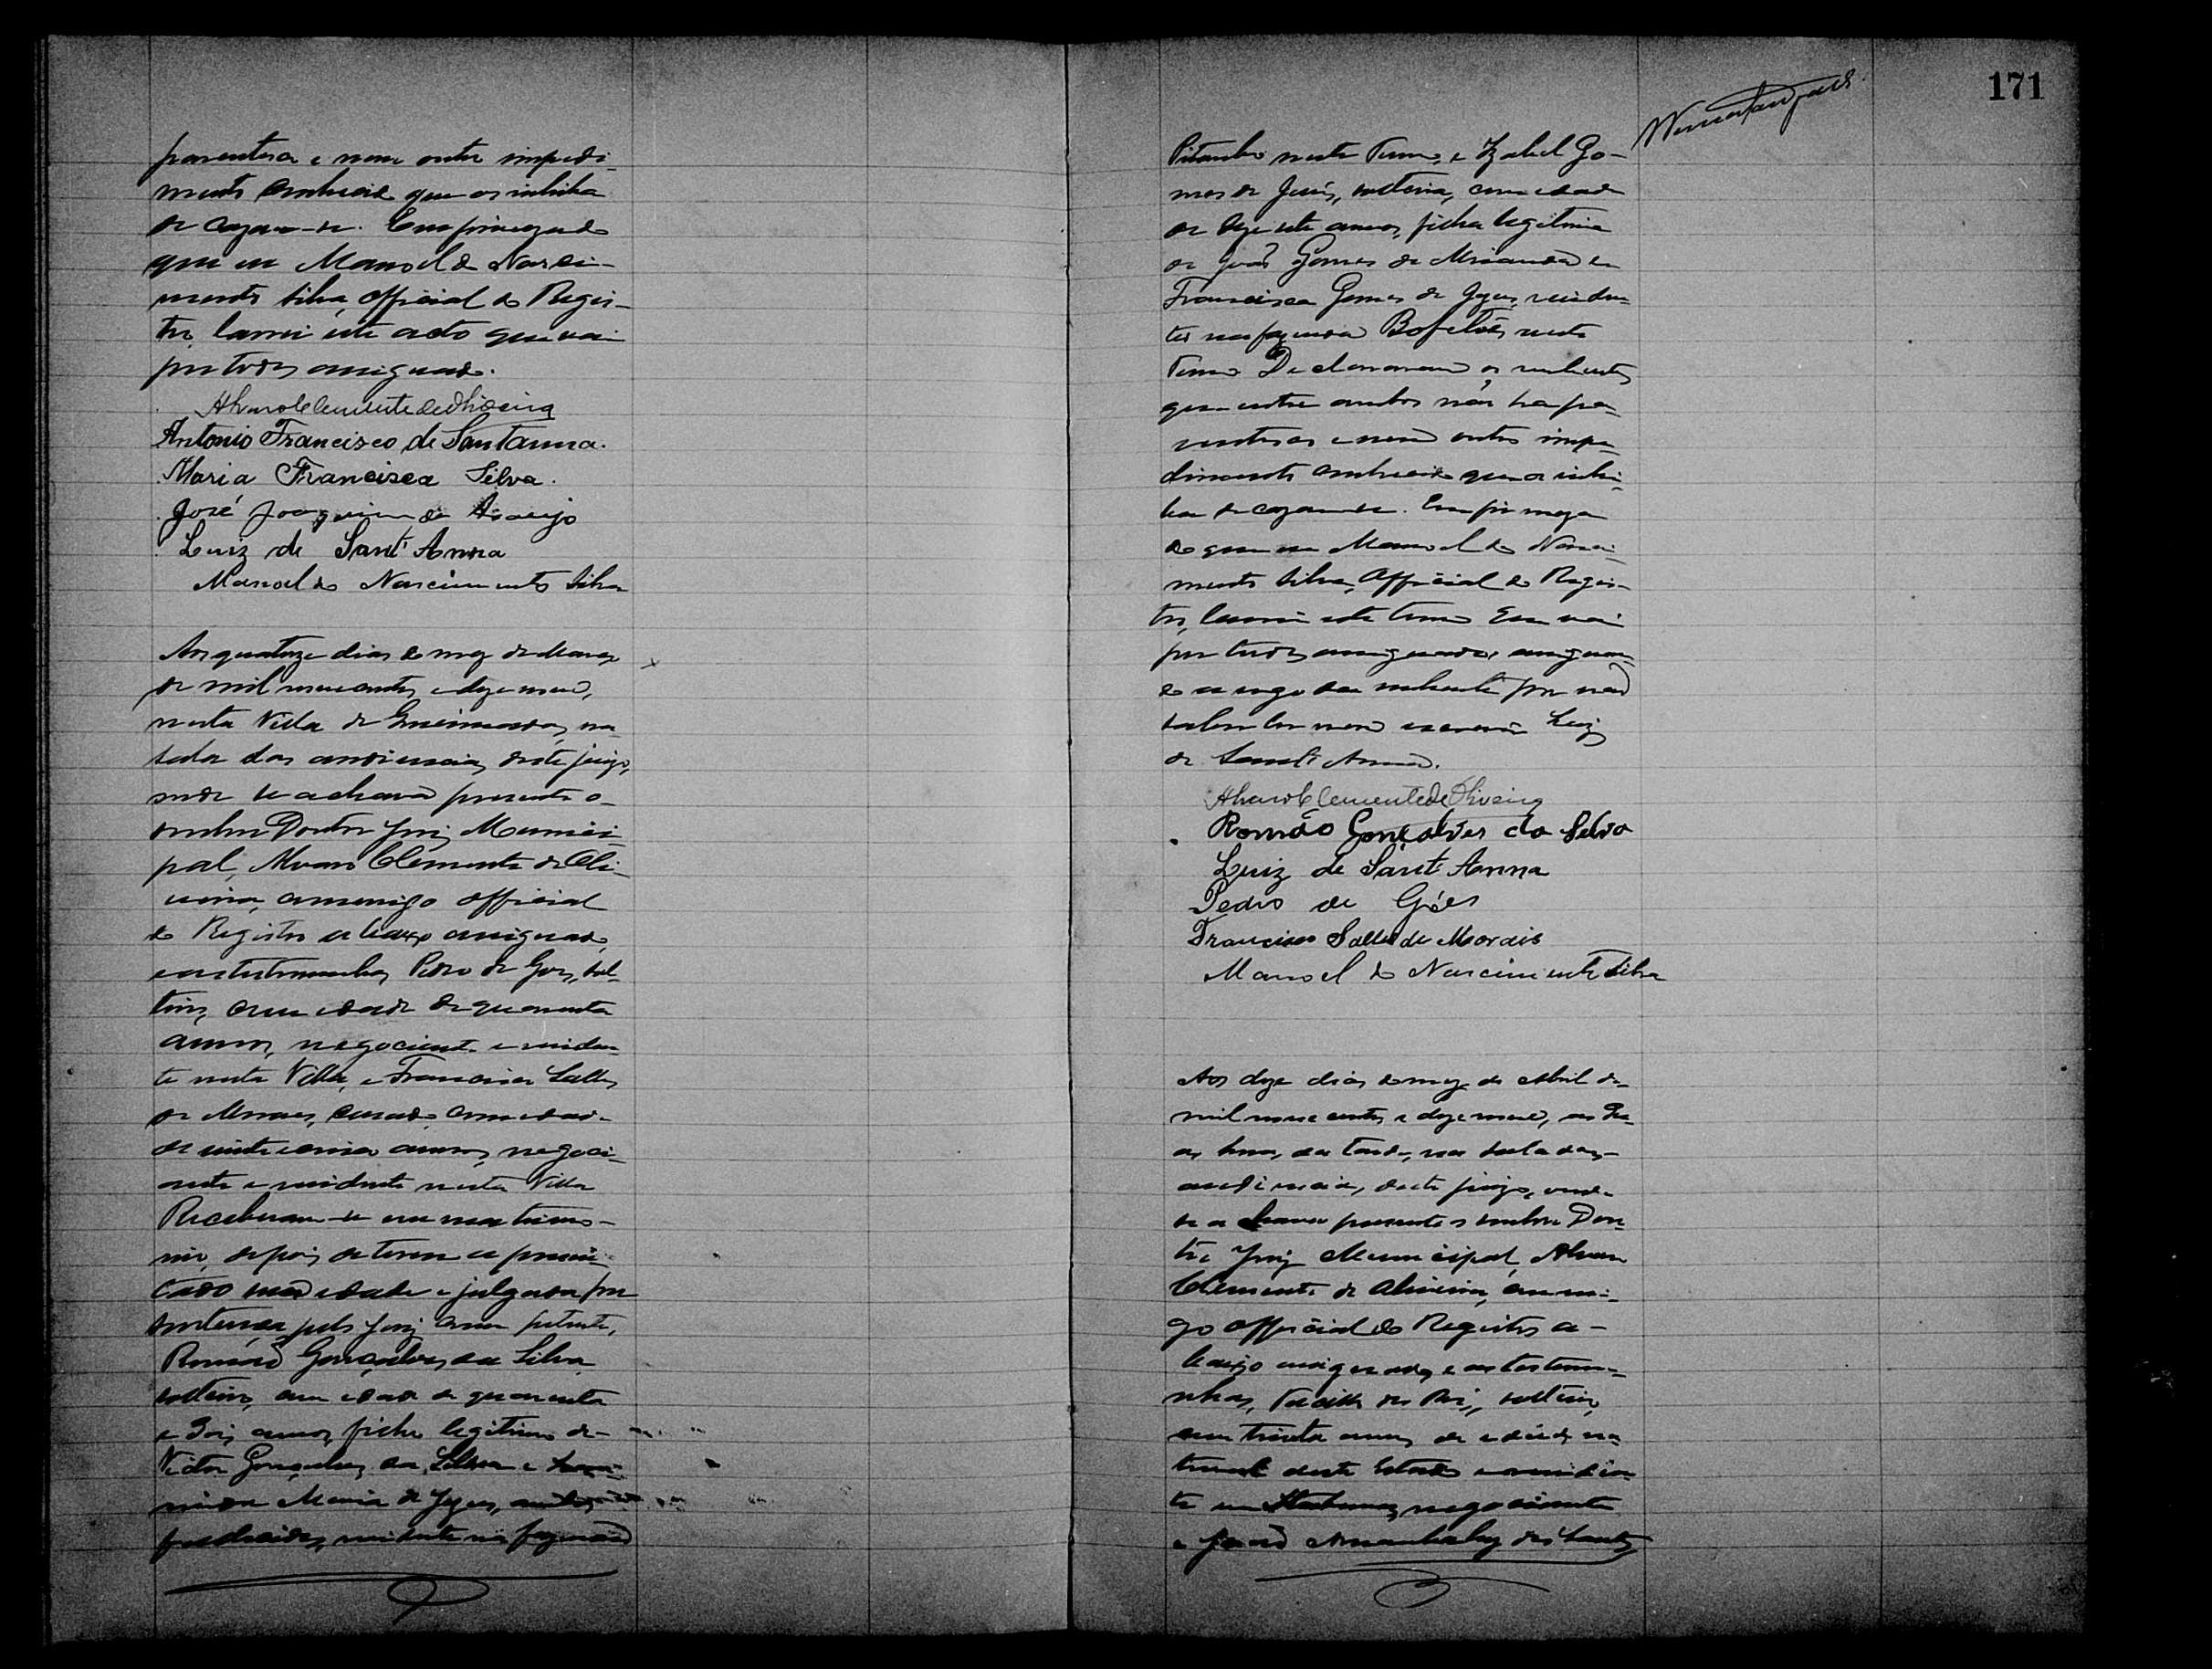 parentesco e nem outro impedi-
mento conhecido que os inhiba
de cazar-se. Em firmeza do
que eu Manoel do Nasci-
mento Silva, official do Regis-
tro, lavrei este acto que vai
por todos assignado.
Alvaro Clemente de Oliveira
Antonio Francisco de Santanna.
Maria Francisca Silva.
José Joaquim de Araujo
Luiz de Sant'Anna
Manoel do Nascimento Silva
Aos quatorze dias do mez de Março
de mil novecentos e dezenove,
nesta Villa de, na
sala das audiencias deste juizo,
onde se achava presente o
senhor Doutor Juiz Munici-
pal, Alvaro Clemente de Oli-
veira, commigo official
do Registro abaixo assignado,
e as testemunhas Pedro de Goes, sol-
teiro, com idade de quarenta
annos, negociante e residen-
te nesta Villa, e Francisco Salles
de Moraes, casado, com idade
de vinte e cinco annos, negoci-
ante e residente nesta Villa
Receberam-se em matrimo-
nio, depois de terem se
e julgada por
sentença pelo Juiz competente,
Romão Gonçalves da Silva
solteiro, com idade de quarenta
e dois annos, filho legitimo de
Victor Gonçalves da Silva e
Maria de Jezus,
fallecidos, residente na fazenda
171
neste Termo, e Izabel Go-
mes de Jesús, solteira, com idade
de dezesete annos, filha legitima
de João Gomes de Miranda e
Francisca Gomes de Jezus, residen-
tes na fazenda neste
Termo. Declararam os nubentes
que entre ambos não ha pa-
rentesco e nem outro impe-
dimento conhecido que os inhi-
ba de cazar-se. Em firmeza
do que eu Manoel do Nasci-
mento Silva, Official do Regis-
tro, lavrei este termo que vai
por todos assignado, assignan-
do a rogo da nubente por não
saber ler nem escrever Luiz
de Sant'Anna.
Alvaro Clemente de Oliveira
Romão Gonçalves da Silva
Luiz de Sant'Anna
Pedro de Góes
Francisco Salles de Morais
Manoel do Nascimento Silva
Aos doze dias do mez de Abril de
mil nove centos e dezenove, as
horas da tarde, na sala das
audiencias, deste juizo, onde
se achava presente o senhor Dou-
tor Juiz Municipal, Alvaro
Clemente de Oliveira, commi-
go official do Registro a-
baixo assignado, e as testemu-
nhas, solteiro,
com trinta annos de idade, na-
tural deste Estado e residen-
te em, negociante
e João dos Santos